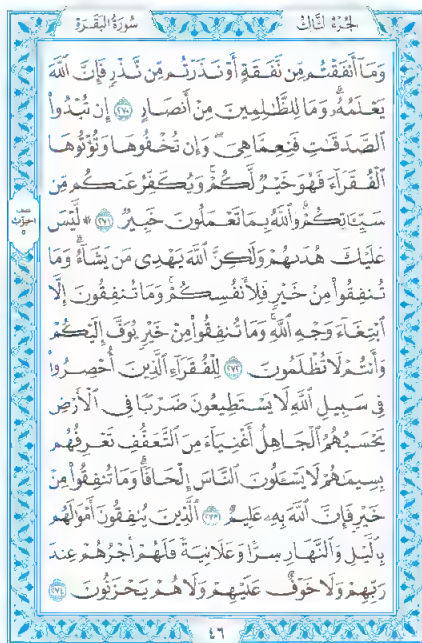 الجزء الثالث
سورة البقرة
وَمَآ أَنفَقْتُم مِّن نَّفَقَةٍ أَوْ نَذَرْتُم مِّن نَّذْرٍ فَإِنَّ ٱللَّهَ
يَعْلَمُهُۥ وَمَا لِلظَّٰلِمِينَ مِنْ أَنصَارٍ ﴿٢٧٠﴾ إِن تُبْدُوا۟
ٱلصَّدَقَٰتِ فَنِعِمَّا هِىَ وَإِن تُخْفُوهَا وَتُؤْتُوهَا
ٱلْفُقَرَآءَ فَهُوَ خَيْرٌ لَّكُمْ وَيُكَفِّرُ عَنكُم مِّن
سَيِّـَٔاتِكُمْ وَٱللَّهُ بِمَا تَعْمَلُونَ خَبِيرٌ ﴿٢٧١﴾ * لَّيْسَ
عَلَيْكَ هُدَىٰهُمْ وَلَٰكِنَّ ٱللَّهَ يَهْدِى مَن يَشَآءُ وَمَا
تُنفِقُوا۟ مِنْ خَيْرٍ فَلِأَنفُسِكُمْ وَمَا تُنفِقُونَ إِلَّا
ٱبْتِغَآءَ وَجْهِ ٱللَّهِ وَمَا تُنفِقُوا۟ مِنْ خَيْرٍ يُوَفَّ إِلَيْكُمْ
وَأَنتُمْ لَا تُظْلَمُونَ ﴿٢٧٢﴾ لِلْفُقَرَآءِ ٱلَّذِينَ أُحْصِرُوا۟
فِى سَبِيلِ ٱللَّهِ لَا يَسْتَطِيعُونَ ضَرْبًا فِى ٱلْأَرْضِ
يَحْسَبُهُمُ ٱلْجَاهِلُ أَغْنِيَآءَ مِنَ ٱلتَّعَفُّفِ تَعْرِفُهُم
بِسِيمَٰهُمْ لَا يَسْـَٔلُونَ ٱلنَّاسَ إِلْحَافًا وَمَا تُنفِقُوا۟ مِنْ
خَيْرٍ فَإِنَّ ٱللَّهَ بِهِۦ عَلِيمٌ ﴿٢٧٣﴾ ٱلَّذِينَ يُنفِقُونَ أَمْوَٰلَهُم
بِٱلَّيْلِ وَٱلنَّهَارِ سِرًّا وَعَلَانِيَةً فَلَهُمْ أَجْرُهُمْ عِندَ
رَبِّهِمْ وَلَا خَوْفٌ عَلَيْهِمْ وَلَا هُمْ يَحْزَنُونَ ﴿٢٧٤﴾
٤٦